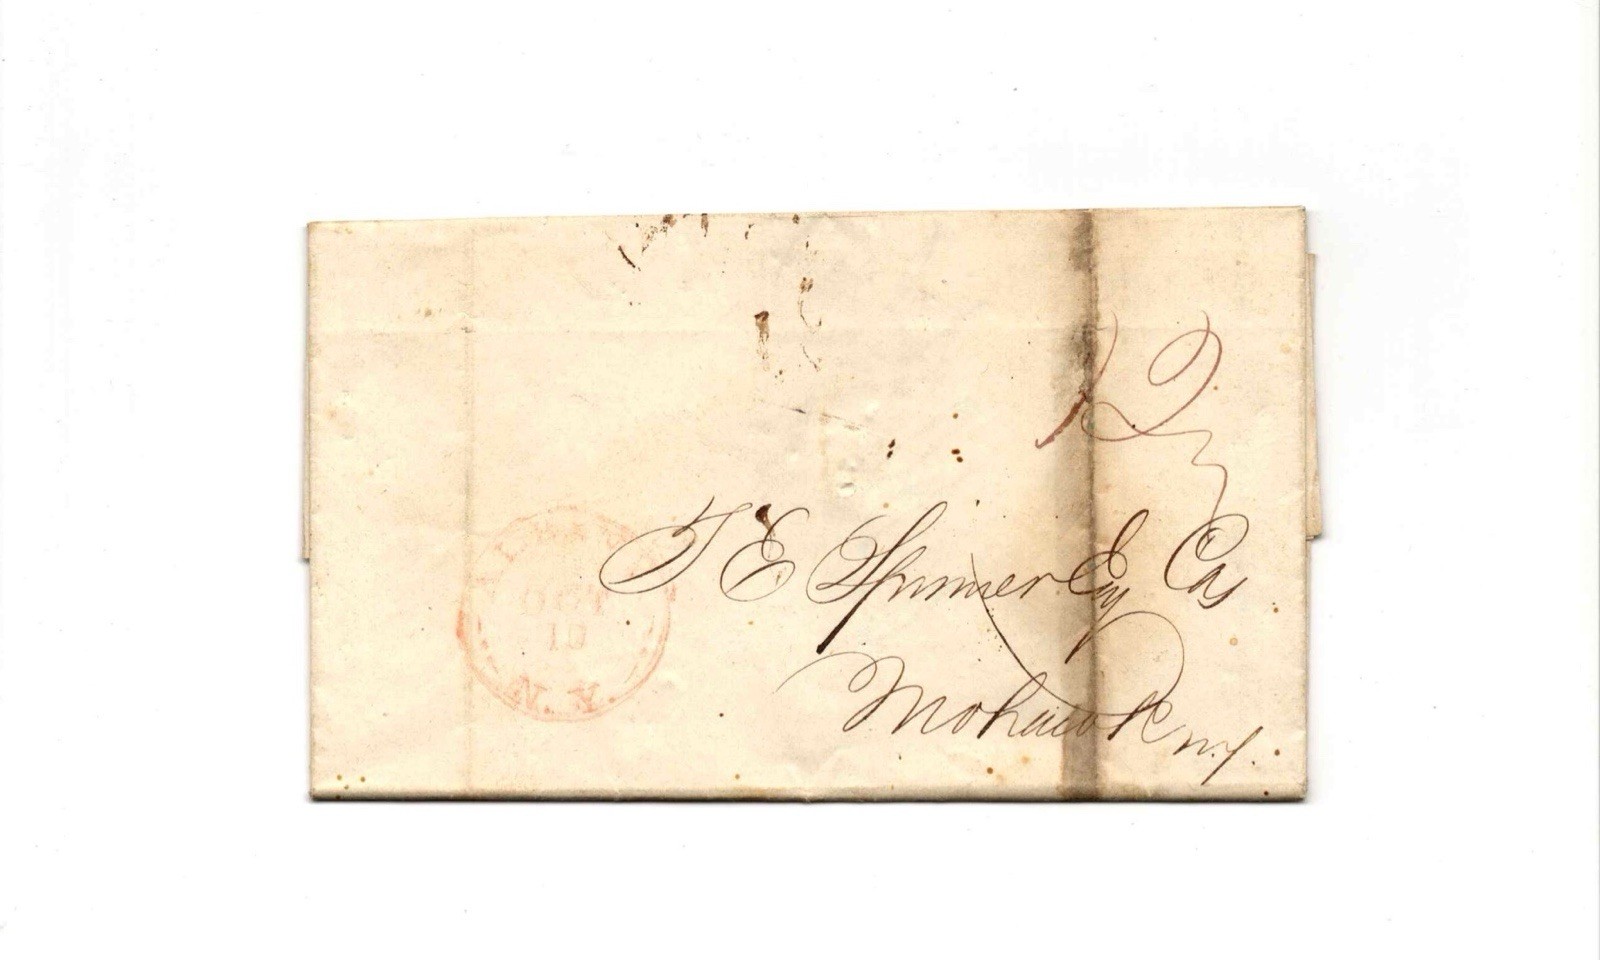 12
F E Spinner Esq Cas
Mohawk N.Y.
OCT
10
N.Y.